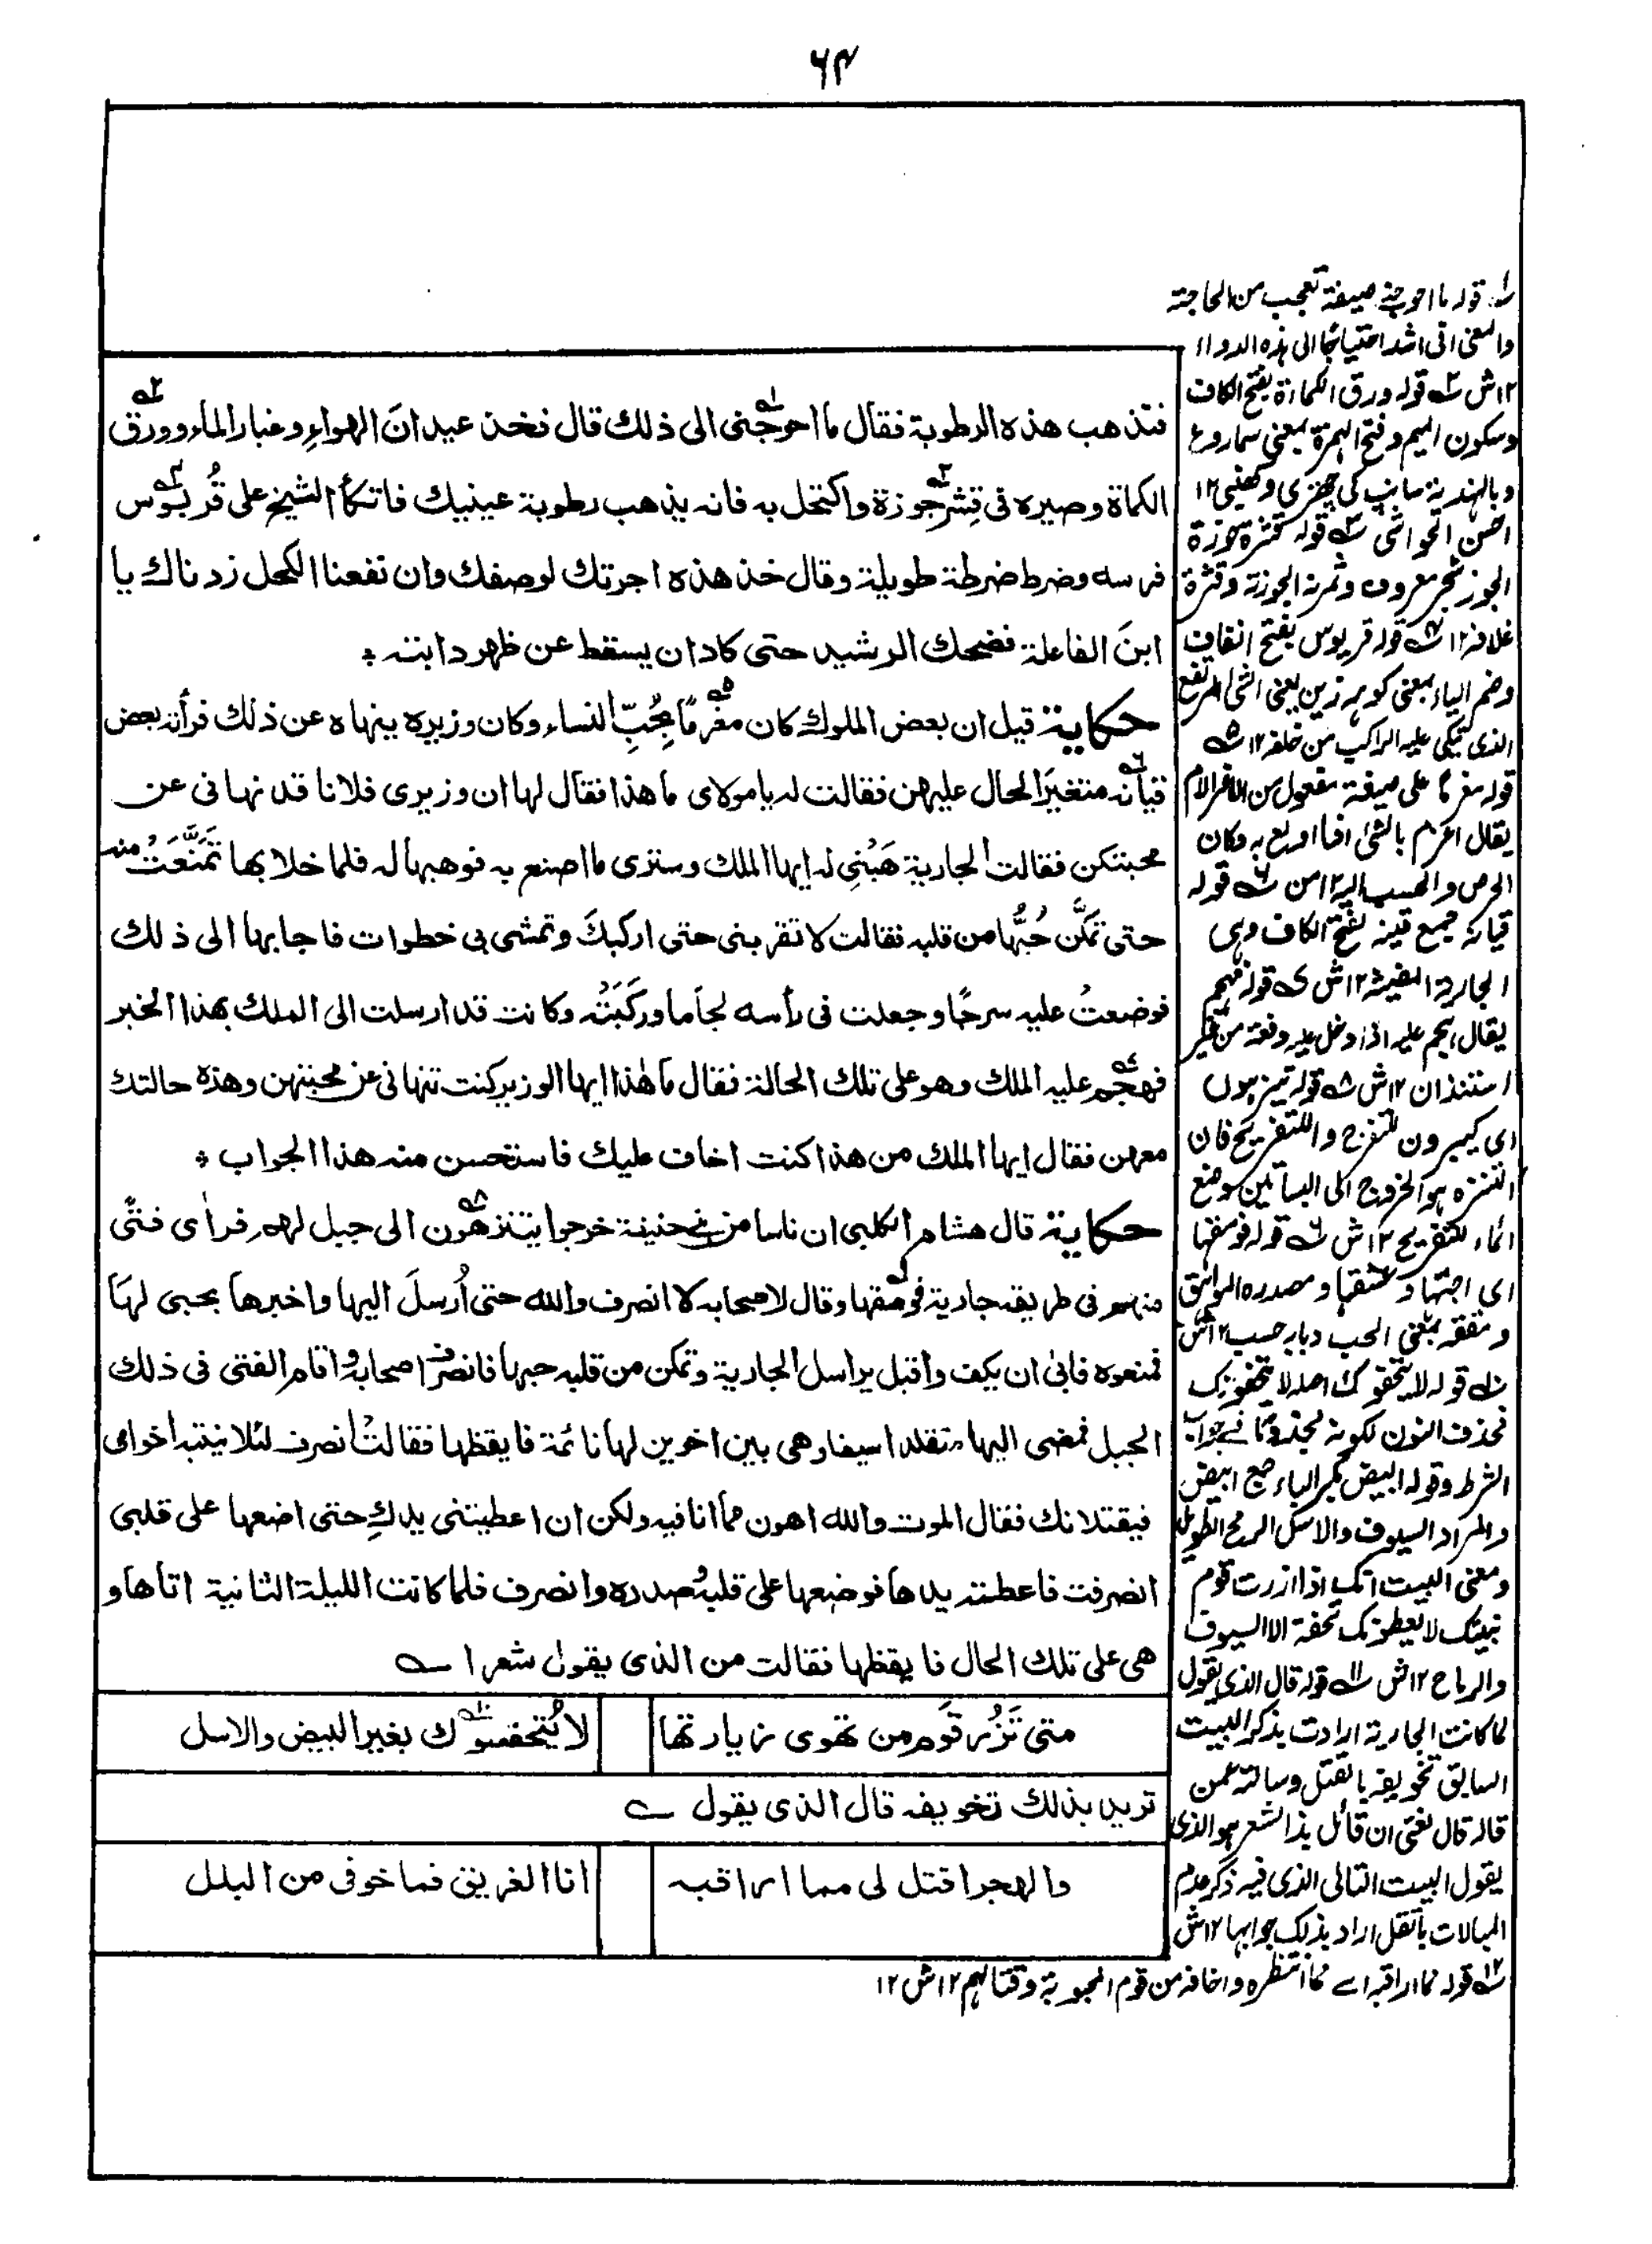 ٦٤
فتذهب هذه الرطوبة فقال ما احوجنى الى ذلك قال فخذ عيدانَ الهواءِ وغبار الماء وورق
الكماة وصيره فى قِشرِ جوزة واكتحل به فانه يذهب رطوبة عينيك فاتكأ الشيخ على قُربوس
فرسه وضرط ضرطة طويلة وقال خذ هذه اجرتك لوصفك وان نفعنا الكحل زدناك يا
ابنَ الفاعلة فضحك الرشيد حتى كاد ان يسقط عن ظهر دابته
حكاية قيل ان بعض الملوك كان مغرمًا بِحُبِّ النساء وكان وزيره ينهاه عن ذلك فرأنه بعض
قيانه متغيرَ الحال عليهن فقالت له يا مولاى ما هذا فقال لها ان وزيرى فلانا قد نهانى عن
محبتكن فقالت الجارية هَبْنِى له ايها الملك وسترى ما اصنع به فوهبها له فلما خلا بها تَمَنَّعَتْ منه
حتى تمكَّن حُبُّها من قلبه فقالت لا تقربنى حتى اركبكَ وتمشى بى خطوات فاجابها الى ذلك
فوضعتْ عليه سرجًا وجعلت فى رأسه لجاما ورَكَبَتْه وكانت قد ارسلت الى الملك بهذا الخبر
فهجم عليه الملك وهو على تلك الحالة فقال ما هٰذا ايها الوزير كنت تنهانى عن محبتهن وهذه حالتك
معهن فقال ايها الملك من هذا كنت اخاف عليك فاستحسن منه هذا الجواب
حكاية قال هشام الكلبى ان ناسا من بنى حنيفة خرجوا يتنزهون الى جبل لهم فرأى فتًى
منهم فى طريقه جارية فومقها وقال لاصحابه لا انصرف والله حتى أُرسلَ اليها واخبرها بحبى لها
فمنعوه فابىٰ ان يكف واقبل يراسل الجارية وتمكن من قلبه حبها فانصرف اصحابه واقام الفتى فى ذلك
الجبل فمضى اليها متقلدا سيفا وهى بين اخوين لها نائمة فايقظها فقالت انصرف لئلا ينتبه اخواى
فيقتلانك فقال الموت والله اهون مما انا فيه ولكن ان اعطيتنى يدكِ حتى اضعها على قلبى
انصرفت فاعطته يدها فوضعها على قلبه وصدره وانصرف فلما كانت الليلة الثانية اتاها و
هى على تلك الحال فايقظها فقالت من الذى يقول شعرا
متى تَزُر قوم من تهوى زيارتها لا يُتحفوك بغير البيض والاسل
تريد بذلك تخويفه قال الذى يقول
والهجر اقتل لى مما اراقبه انا الغريق فما خوفى من البلل
١ قوله ما احوجنى صيغة تعجب من الحاجة
والمعنى انى اشد احتياجًا الى هذه الدواء
١٢ش ٢ قوله ورق الكماة بفتح الكاف
وسكون الميم وفتح الهمزة بمعنى سماروغ
وبالهندية سانپ كى چھترى وكھنبى ١٢
احسن الحواشى ٣ قوله قشرة جوزة
الجوز شجر معروف وثمرته الجوزة وقشرة
غلافه ١٢ ٤ قوله قربوس بفتح القاف
وضم الباء بمعنى كوہہ زين يعنى الشئ المرتفع
الذى يتكى عليه الراكب من خلفه ١٢ ٥
قوله مغرما على صيغة مفعول من الاغرام
يقال اغرم بالشئ اذا اولع به وكان
الحرص والحب اليه ١٢ من ٦ قوله
قيانه جمع قينة بفتح الكاف وهى
الجارية المغنية ١٢ش ٧ قوله فهجم
يقال هجم عليه اذا دخل عليه دفعة من غير
استئذان ١٢ش ٨ قوله يتنزهون
اى يسيرون للتفرج والتفريح فان
التنزه هو الخروج الى البساتين موضع
الماء للتفريح ١٢ش ٩ قوله فومقها
اى احبها وعشقها ومصدره الموامق
ومقة بمعنى الحب وبابه حسب ١٢ش
١٠ قوله لا يتحفوك اصله لا يتحفونك
فحذف النون لكونه مجزوما فى جواب
الشرط وقوله البيض بكسر الباء جمع ابيض
والمراد السيوف والاسل الرمح الطويل
ومعنى البيت انك اذا زرت قوم
حبيبتك لا يعطونك تحفة الا السيوف
والرماح ١٢ش ١١ قوله قال الذى يقول
لما كانت الجارية ارادت بذكر البيت
السابق تخويفه بالقتل وسالته عمن
قاله قال الفتى ان قائل هذا الشعر هو الذى
يقول البيت التالى الذى فيه ذكر عدم
المبالات بالقتل اراد بذلك جوابها ١٢ش
١٢ قوله مما اراقبه اى مما انتظره واخافه من قوم المحبوبة وقتالهم ١٢ش ١٢